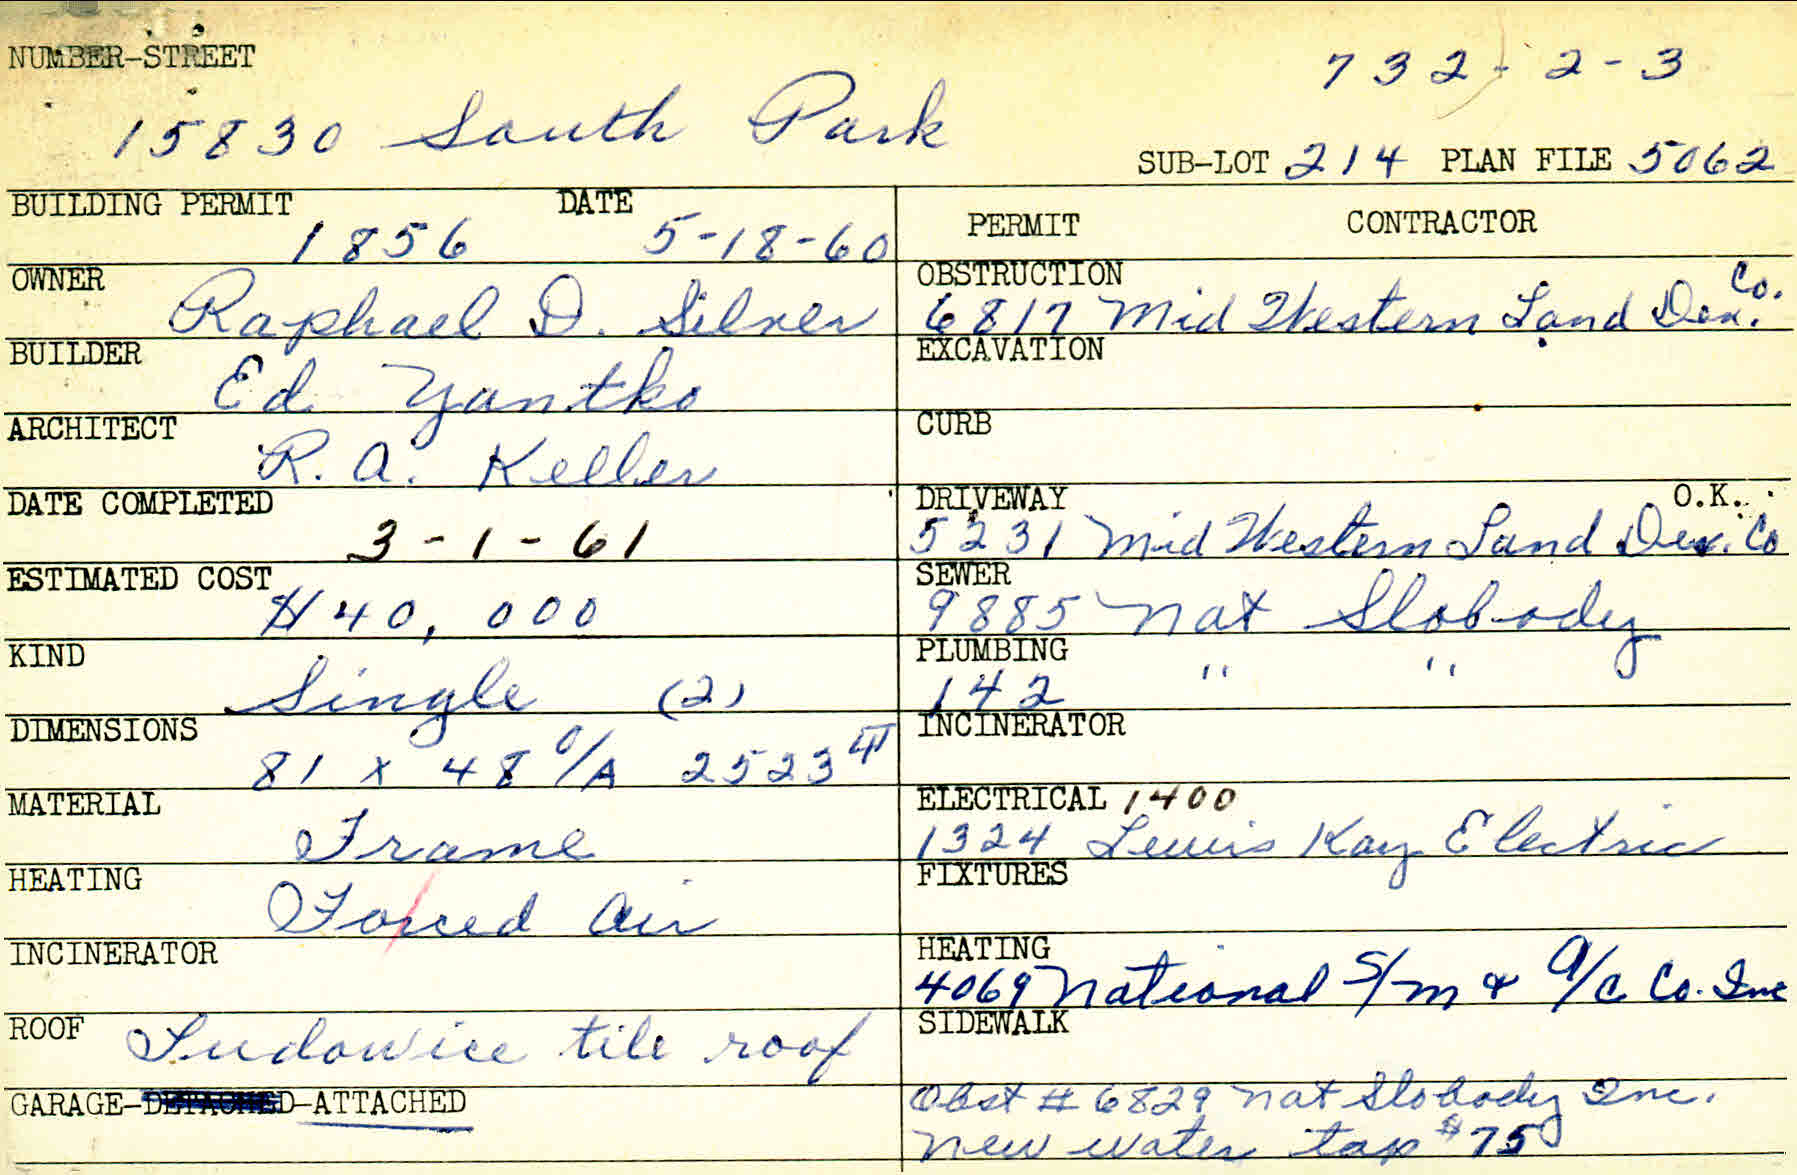 NUMBER-STREET
732-2-3
15830 South Park
SUB-LOT 214 PLAN FILE 5062
BUILDING PERMIT DATE
1856 5-18-60
PERMIT CONTRACTOR
OWNER
Raphael D. Silver
BUILDER
Ed Yantko
ARCHITECT
R. A. Keller
DATE COMPLETED
3-1-61
ESTIMATED COST
$40,000
KIND
Single (2)
DIMENSIONS
81 x 48 O/A 2523
MATERIAL
Frame
HEATING
Forced Air
INCINERATOR
ROOF Ludowice tile roof
GARAGE-DETACHED-ATTACHED
OBSTRUCTION
6817 Mid Western Land Dev. Co.
EXCAVATION
CURB
DRIVEWAY O.K.
5231 Mid Western Land Dev. Co
SEWER
9885 Nat Slobody
PLUMBING
142 " "
INCINERATOR
ELECTRICAL 1400
1324 Lewis Kay Electric
FIXTURES
HEATING
4069 National S/M & A/C Co. Inc
SIDEWALK
Obst # 6829 Nat Slobody Inc.
New water tap $75